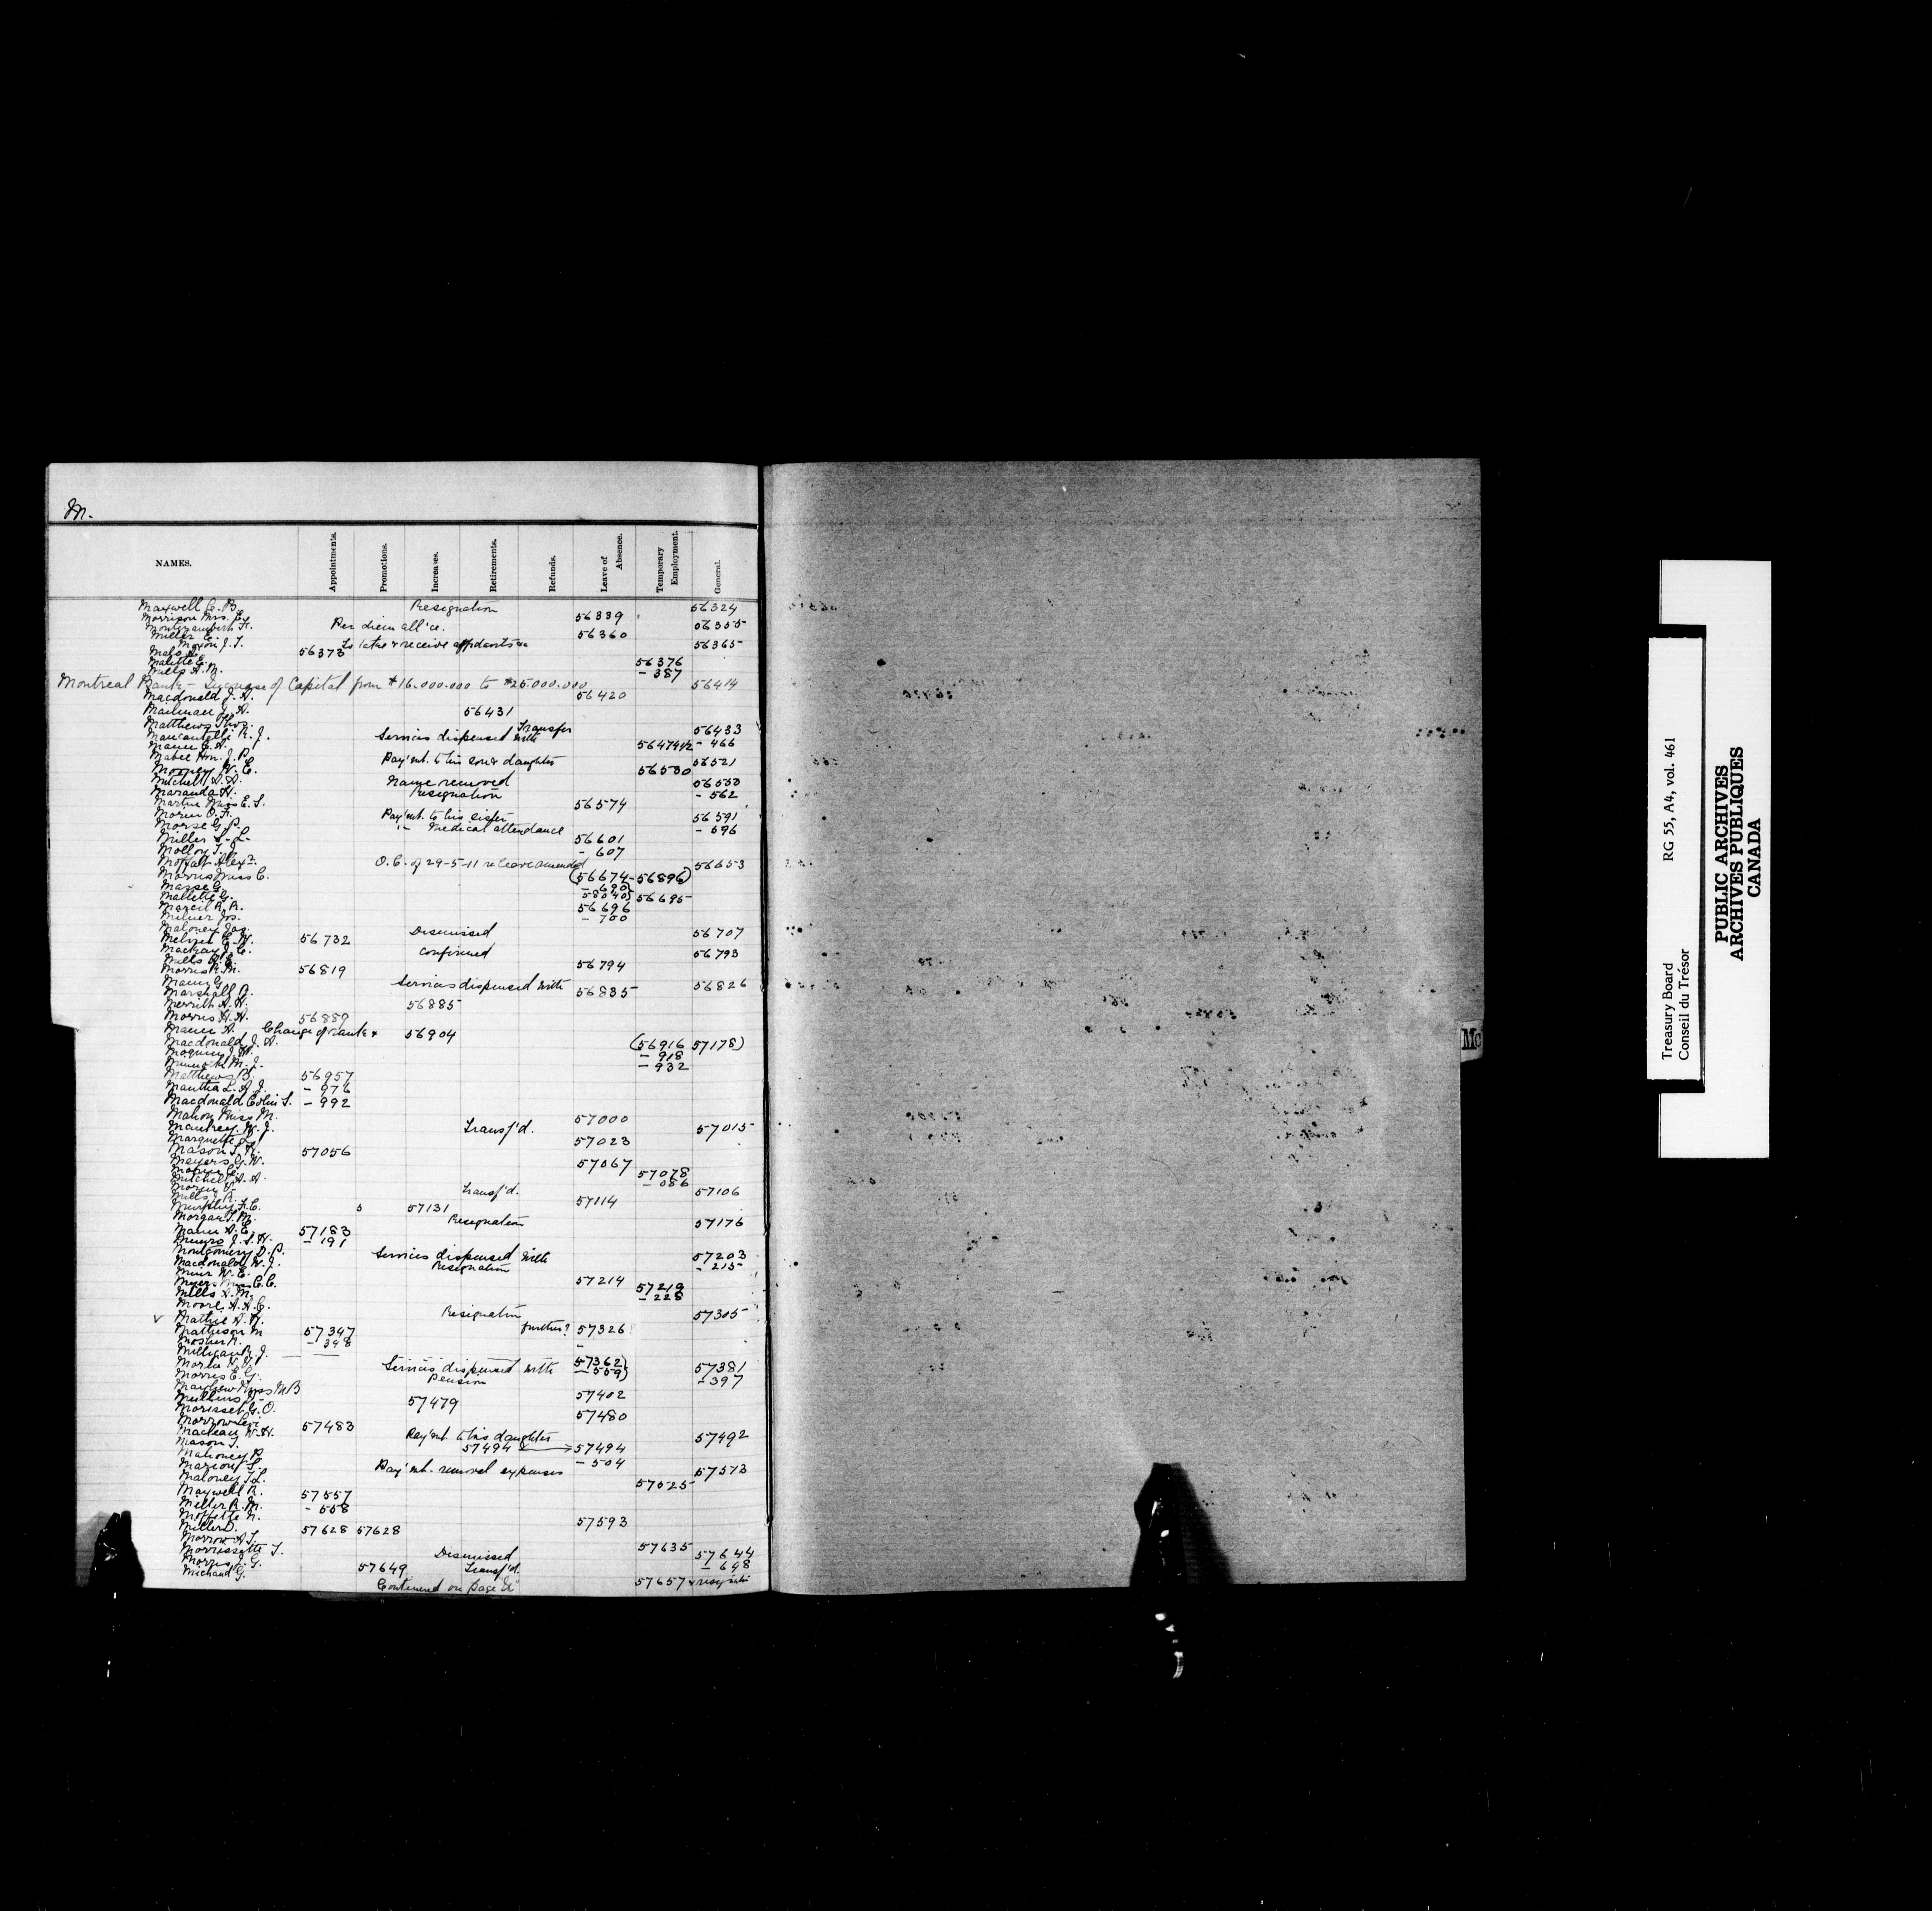 M.
NAMES. Appointments. Promotions. Increases. Retirements. Refunds. Leave of Absence. Temporary Employment. General.
Maxwell C. B. Resignation 56324
Morrison Mrs. E. 56339
Montizambert F. Per diem all'ce. 56355
Miller E. 56360
Moxon J. T. To take & receive affidavits 56365
Malo A. 56373
Malette G. 56376
Mills A. M. - 387
Montreal Bank - Increase of Capital from $16.000.000 to $25.000.000 56414
Macdonald J. A. 56420
Mailman L. A. 56431
Matthews Thos. Transfer 56433
R. J. Services dispensed with - 466
Mann G. A. 56474 1/2
Mabee Hon. J. P. Pay'mt. to his son & daughter 56521
Mooney W. E. 56530
Mitchell A. A. Name removed
Maranda H. Resignation - 562
Martin Miss E. S. 56574
Morin O. F. Pay'mt. to his sister 56591
Morse G. P. " - medical attendance - 596
Miller T. L. 56601
Molloy T. - 607
Moffatt Alexr. O.C. of 29-5-11 re leave amended 56653
Morris Miss C. (56674 - 56896)
Masse G. - 690)
Mallette G. 56695
Marcil R. R. 56696
Milner Jos. - 700
Maloney Jas. Dismissed 56707
Melvin C. W. 56732
Mackay J. C. Confirmed 56793
Mills R. E. 56794
Morris R. M. 56819
Many G. Services dispensed with 56826
Marshall R. 56835
Merrith A. H. 56885
Morris H. A. 56889
Mann A. Change of rank & 56904
Macdonald J. A. (56916 57178)
- 918
M. J. - 932
Matthews B. 56957
Mantha L. A. J. - 976
Macdonald Colin S. - 992
Mahon Miss M. 57000
W. J. Transf'd. 57015
Marquette L. 57023
Mason S. R. 57056
Meyers G. W. 57067
57078
Mitchell A. A. - 086
Morin V. Transf'd. 57106
Mills J. R. 57114
Murphy F. C. 57131
Morgan T. M. Resignation 57176
Mann A. E. 57183
Munro J. S. H. - 191
Montgomery D. P. Services dispensed with 57203
Macdonald W. J. Resignation - 215
Muir W. E. 57214
Myers Miss C. C. 57219
Mills L. M. - 228
Moore A. H. C. Resignation 57305
Mathie A. W. further? 57326
Mathison M 57347
Mosher R. - 348
Milligan R. J. 57362)
- 559)
Martin Services dispensed with 57381
Morris E. G. Pension - 397
Mayhew Miss M B 57402
Mullins 57479
Morisset G. O. 57480
Morrow Levi 57483
W. H. Pay'mt. to his daughter 57492
Mason T. 57494 57494
Mahoney P. - 504
Marion L. Pay'mt. removal expenses 57513
Maloney T. L. 57525
Maxwell R. 57557
Miller R. M. - 558
Moffette N. 57593
Miller D. 57628 57628
Morrow A. T. 57635
Morrissette T. Dismissed 57644
Morris J. G. 57649 Transf'd. - 648
Michaud G. 57657 & resig'ation
Continued on page
Mc
Treasury Board RG 55, A4, vol. 461
Conseil du Trésor
PUBLIC ARCHIVES
ARCHIVES PUBLIQUES
CANADA